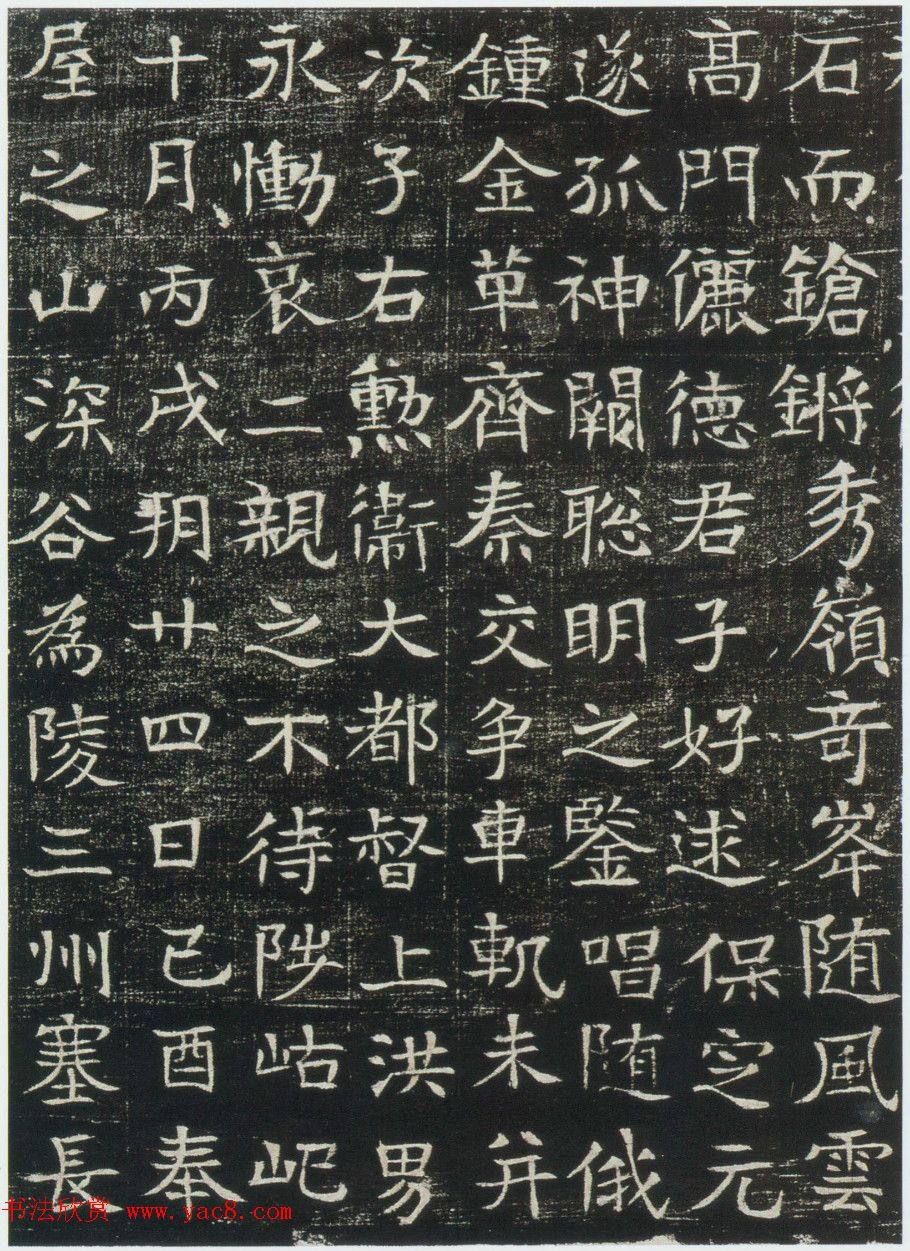 石而鎗鏘秀嶺奇峯随風雲
髙門儷德君子好逑保定元
遂孤神闕聡明之鑒唱随俄
鍾金革齊秦交争車軌未并
次子右勲衞大都督上洪男
永慟哀二親之不待陟岵屺
十月丙戌朔廿四日己酉奉
屋之山深谷為陵三州塞長
书法欣赏 www.yac8.com